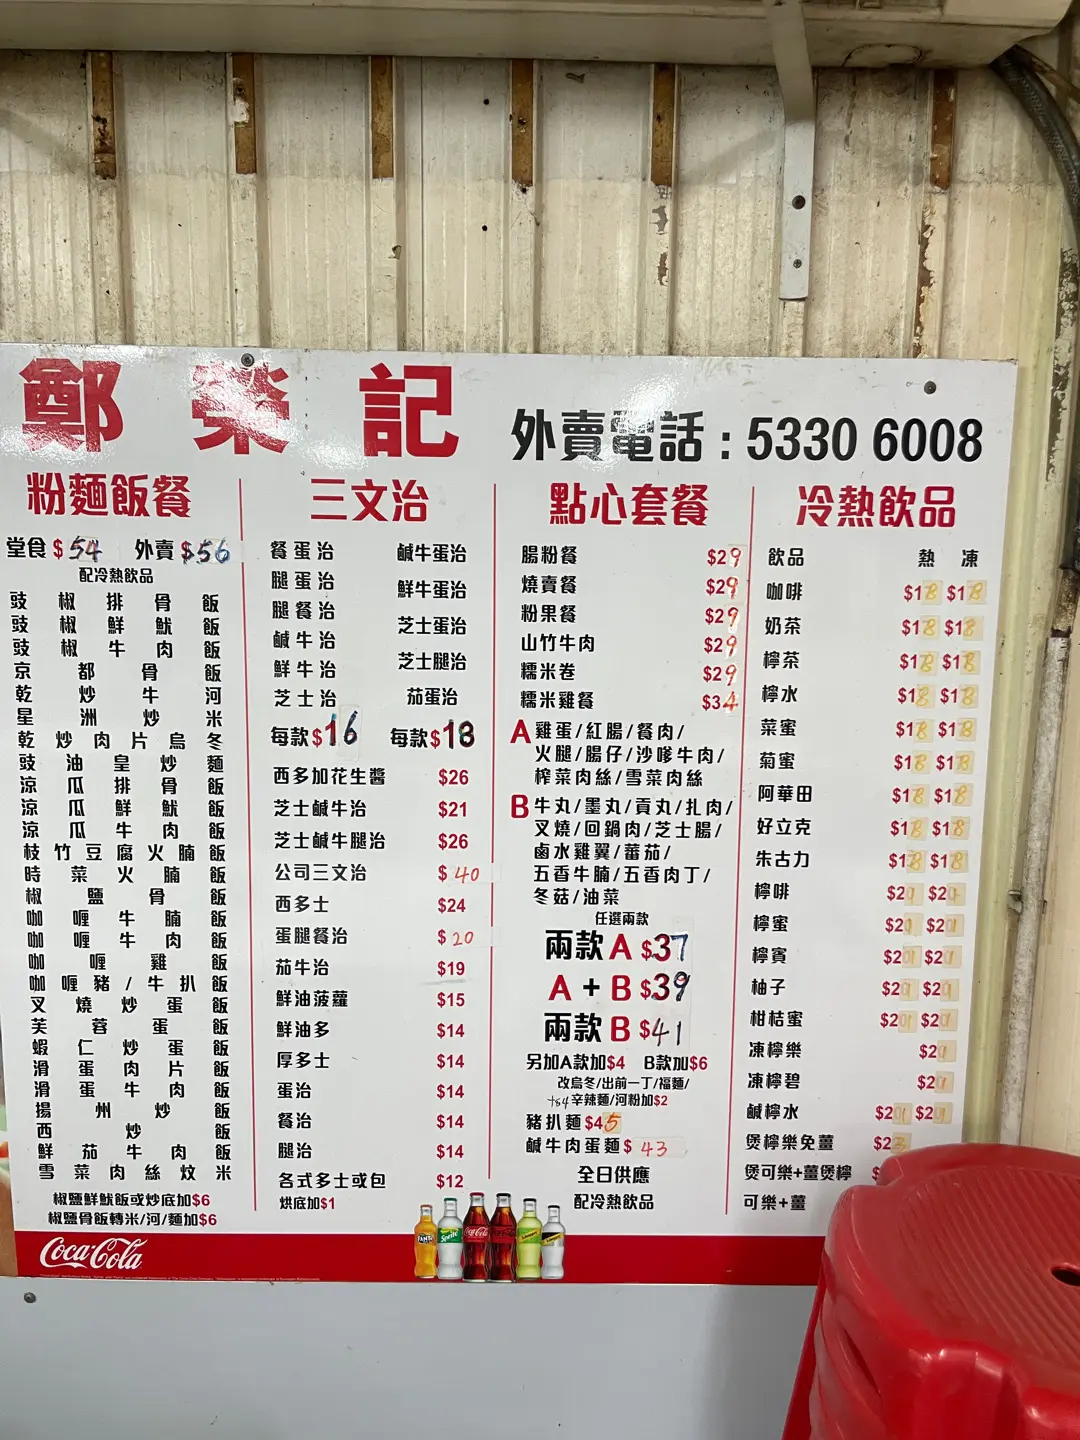 鄭榮記
外賣電話:5330 6008
粉麵飯餐
堂食$54 外賣$56
配冷熱飲品
豉椒排骨飯
豉椒鮮魷飯
豉椒牛肉飯
京都骨飯
乾炒牛河
星洲炒米
乾炒肉片烏冬
豉油皇炒麵
涼瓜排骨飯
涼瓜鮮魷飯
涼瓜牛肉飯
枝竹豆腐火腩飯
時菜火腩飯
椒鹽骨飯
咖喱牛腩飯
咖喱牛肉飯
咖喱雞飯
咖喱豬/牛扒飯
叉燒炒蛋飯
芙蓉蛋飯
蝦仁炒蛋飯
滑蛋肉片飯
滑蛋牛肉飯
揚州炒飯
西炒飯
鮮茄牛肉飯
雪菜肉絲炆米
椒鹽鮮魷飯或炒底加$6
椒鹽骨飯轉米/河/麵加$6
三文治
餐蛋治 鹹牛蛋治
腿蛋治 鮮牛蛋治
腿餐治 芝士蛋治
鹹牛治 芝士腿治
鮮牛治 茄蛋治
芝士治
每款$16 每款$18
西多加花生醬 $26
芝士鹹牛治 $21
芝士鹹牛腿治 $26
公司三文治 $40
西多士 $24
蛋腿餐治 $20
茄牛治 $19
鮮油菠蘿 $15
鮮油多 $14
厚多士 $14
蛋治 $14
餐治 $14
腿治 $14
各式多士或包 $12
烘底加$1
點心套餐
腸粉餐 $29
燒賣餐 $29
粉果餐 $29
山竹牛肉 $29
糯米卷 $29
糯米雞餐 $34
A 雞蛋/紅腸/餐肉/
火腿/腸仔/沙嗲牛肉/
榨菜肉絲/雪菜肉絲
B 牛丸/墨丸/貢丸/扎肉/
叉燒/回鍋肉/芝士腸/
鹵水雞翼/蕃茄/
五香牛腩/五香肉丁/
冬菇/油菜
任選兩款
兩款A $37
A+B $39
兩款B $41
另加A款加$4 B款加$6
改烏冬/出前一丁/福麵/
辛辣麵/河粉加$2
豬扒麵 $45
鹹牛肉蛋麵 $43
全日供應
配冷熱飲品
冷熱飲品
飲品 熱 凍
咖啡 $18 $18
奶茶 $18 $18
檸茶 $18 $18
檸水 $18 $18
菜蜜 $18 $18
菊蜜 $18 $18
阿華田 $18 $18
好立克 $18 $18
朱古力 $18 $18
檸啡
檸蜜
檸賓
柚子
柑桔蜜
凍檸樂
凍檸碧
鹹檸水
煲檸樂免薑 $23
煲可樂+薑煲檸 $
可樂+薑
Coca-Cola